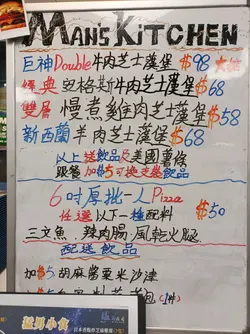 MAN'S KITCHEN
巨神Double牛肉芝士漢堡 $98
經典 安格斯牛肉芝士漢堡 $68
雙層 慢煮雞肉芝士漢堡 $58
新西蘭羊肉芝士漢堡 $68
以上送飲品及美國薯條
跟餐加$5可換走装飲品
6吋厚批一人Pizza
任選以下一種配料 $50
三文魚、辣肉腸、風乾火腿
配送飲品
加$5胡麻醬粟米沙律
加$
猛男小食